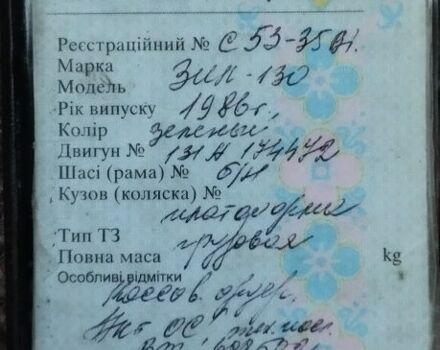 Реєстраційний № С 53-35
Марка
Модель ЗИЛ-130
Рік випуску 1986г.,
Колір зеленый
Двигун № 131А 174472
Шасі (рама) № б/н
Кузов (коляска) №
платформа
Тип ТЗ грузовая
Повна маса kg
Особливі відмітки
Кассов. ордер.
Акт ОС